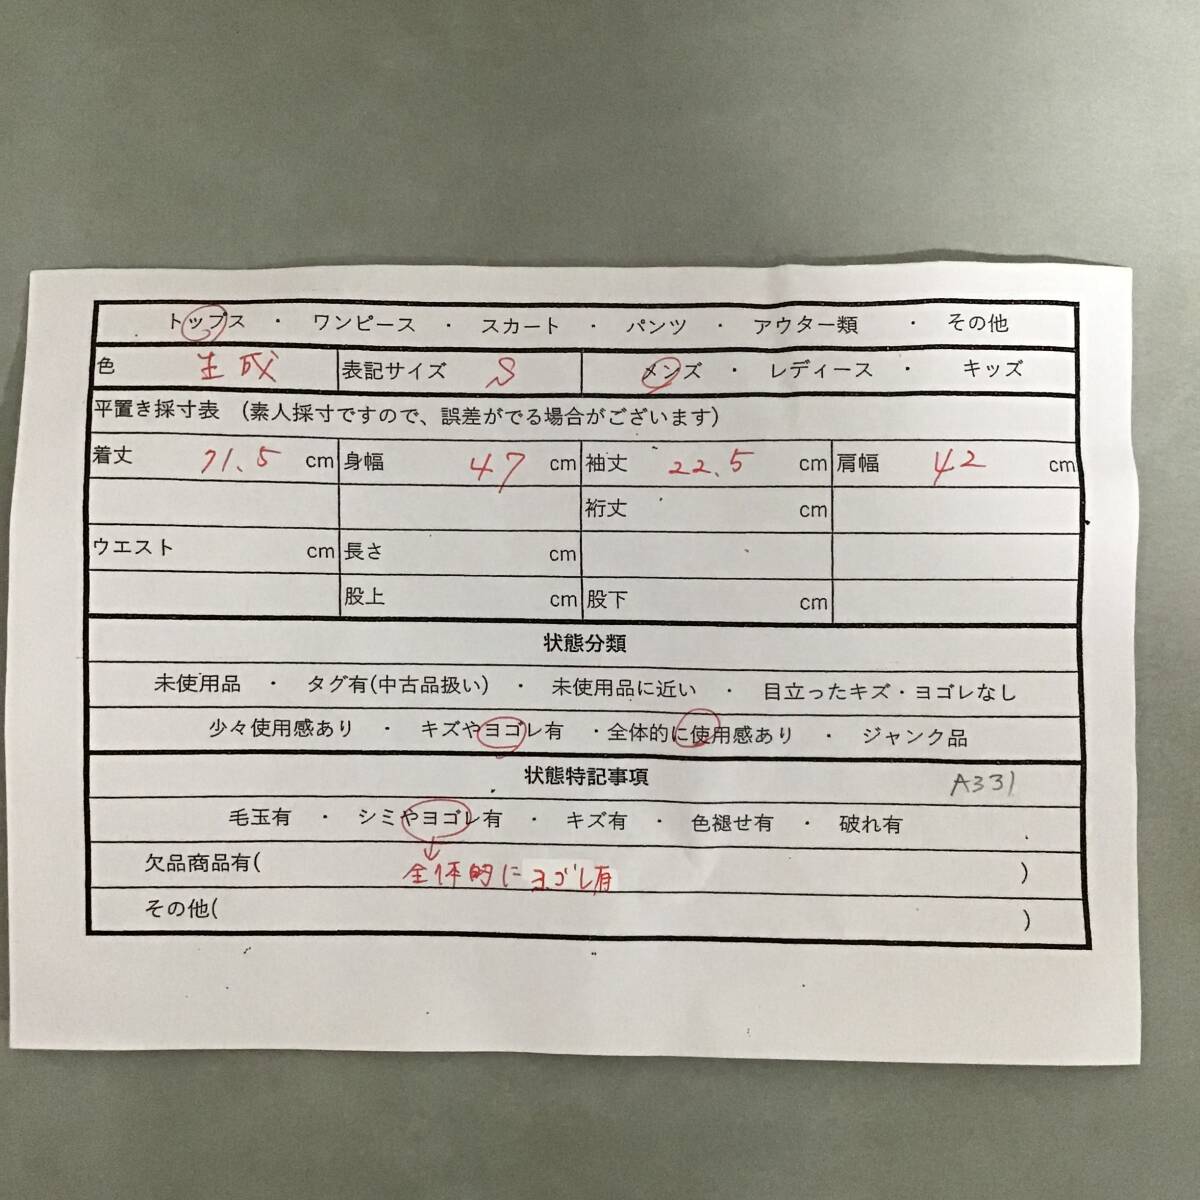 トップス ・ ワンピース ・ スカート ・ パンツ ・ アウター類 ・ その他
色 生成 表記サイズ S メンズ ・ レディース ・ キッズ
平置き採寸表 (素人採寸ですので、誤差がでる場合がございます)
着丈 71.5 cm 身幅 47 cm 袖丈 22.5 cm 肩幅 42 cm
裄丈 cm
ウエスト cm 長さ cm
股上 cm 股下 cm
状態分類
未使用品 ・ タグ有(中古品扱い) ・ 未使用品に近い ・ 目立ったキズ・ヨゴレなし
少々使用感あり ・ キズやヨゴレ有 ・全体的に使用感あり ・ ジャンク品
状態特記事項 A331
毛玉有 ・ シミやヨゴレ有 ・ キズ有 ・ 色褪せ有 ・ 破れ有
欠品商品有( 全体的に ヨゴレ有 )
その他( )